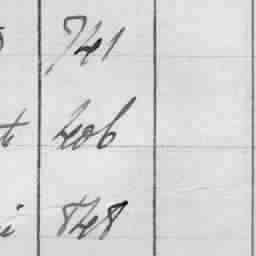 741
406
848